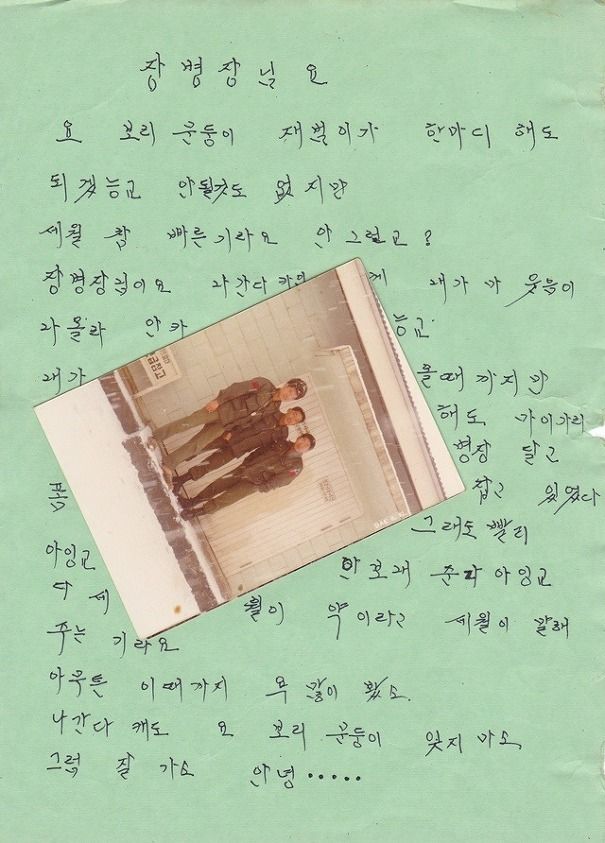 장병장님 요
요 보리 문둥이 재벌이가 한마디 해도
되겠능교 안될것도 없지만
세월 참 빠른기라요 안 그렇교?
장병장님이요 나간다 카인 께 내가 마 웃음이
나올라 안카 능교
내가 올때까지만
해도 가이가리
병장 달고
폼 잡고 있었다
그래도 빨리
아잉교 안보내 준다 아잉교
다 세월이 약이라고 세월이 말해
주는 기라요
아무튼 이때까지 욕 많이 봤소.
나간다 캐도 요 보리 문둥이 잊지 마소
그럼 잘 가소 안녕.....